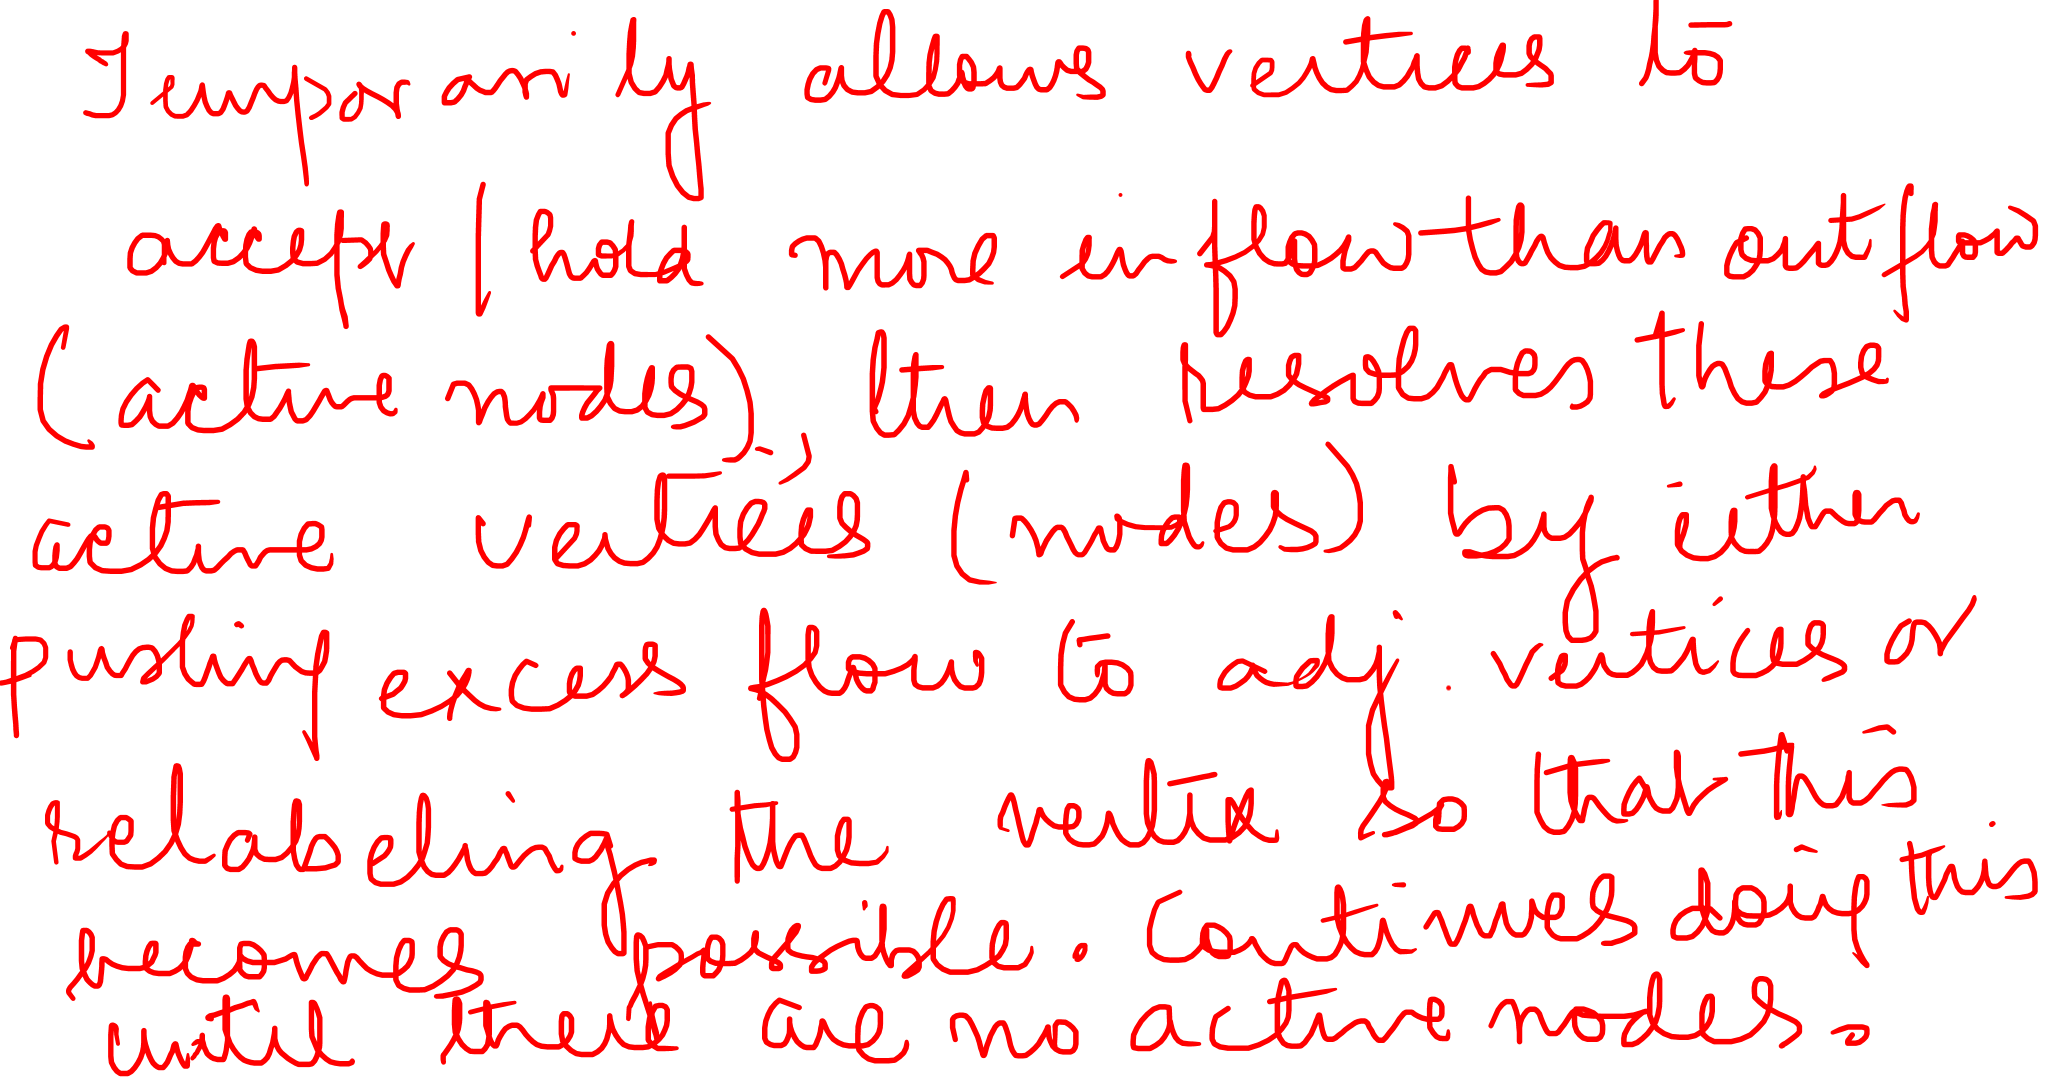 Temporarily allows vertices to
accept / hold more inflow than outflow
(active nodes), then resolves these
active vertices (nodes) by either
pushing excess flow to adj. vertices or
relabeling the vertex so that this
becomes possible. Continues doing this
until there are no active nodes.